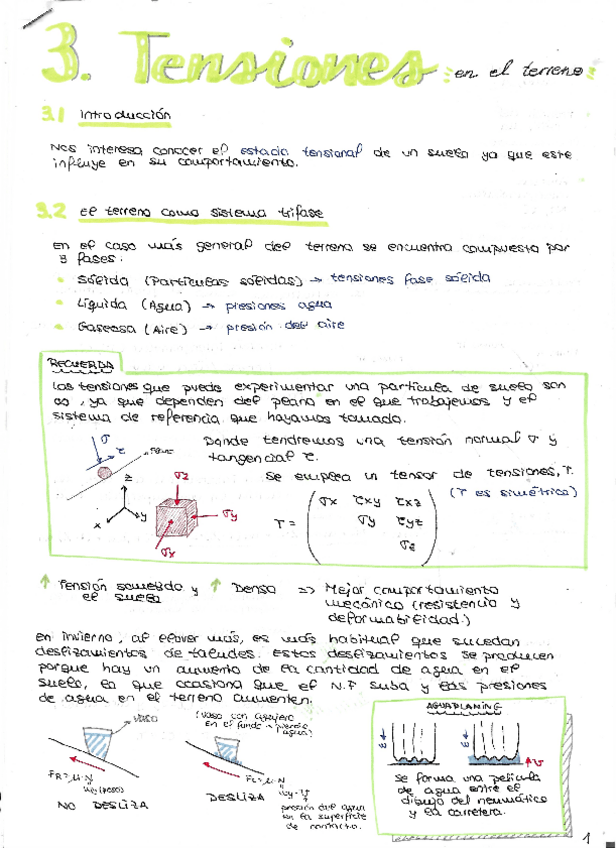 3. Tensiones en el terreno
3.1 Introducción
Nos interesa conocer el estado tensional de un suelo ya que este
influye en su comportamiento.
3.2 El terreno como sistema trifase
En el caso más general del terreno se encuentra compuesto por
3 fases:
• Sólida (Partículas sólidas) → tensiones fase sólida
• Líquida (Agua) → presiones agua
• Gaseosa (Aire) → presión del aire
RECUERDA
Las tensiones que puede experimentar una partícula de suelo son
∞, ya que dependen del plano en el que trabajemos y el
sistema de referencia que hayamos tomado.
σ
τ
Donde tendremos una tensión normal σ y
tangencial τ.
Se emplea un tensor de tensiones, T.
(T es simétrica)
z
x
y
σz
σy
σx
T =
σx τxy τxz
σy τyz
σz
↑ Tensión sometido y ↑ Denso ⇒ Mejor comportamiento
el suelo
mecánico (resistencia y
deformabilidad.)
En invierno, al llover más, es más habitual que sucedan
deslizamientos de taludes. Estos deslizamientos se producen
porque hay un aumento de la cantidad de agua en el
suelo, lo que ocasiona que el N.F suba y las presiones
de agua en el terreno aumenten.
vaso
FR = μ·N
(peso)
NO DESLIZA
(vaso con agujero
en el fondo → pierde
agua)
FR = μ·N
DESLIZA
presión del agua
en la superficie
de contacto.
AQUAPLANING
Se forma una película
de agua entre el
dibujo del neumático
y la carretera.
1